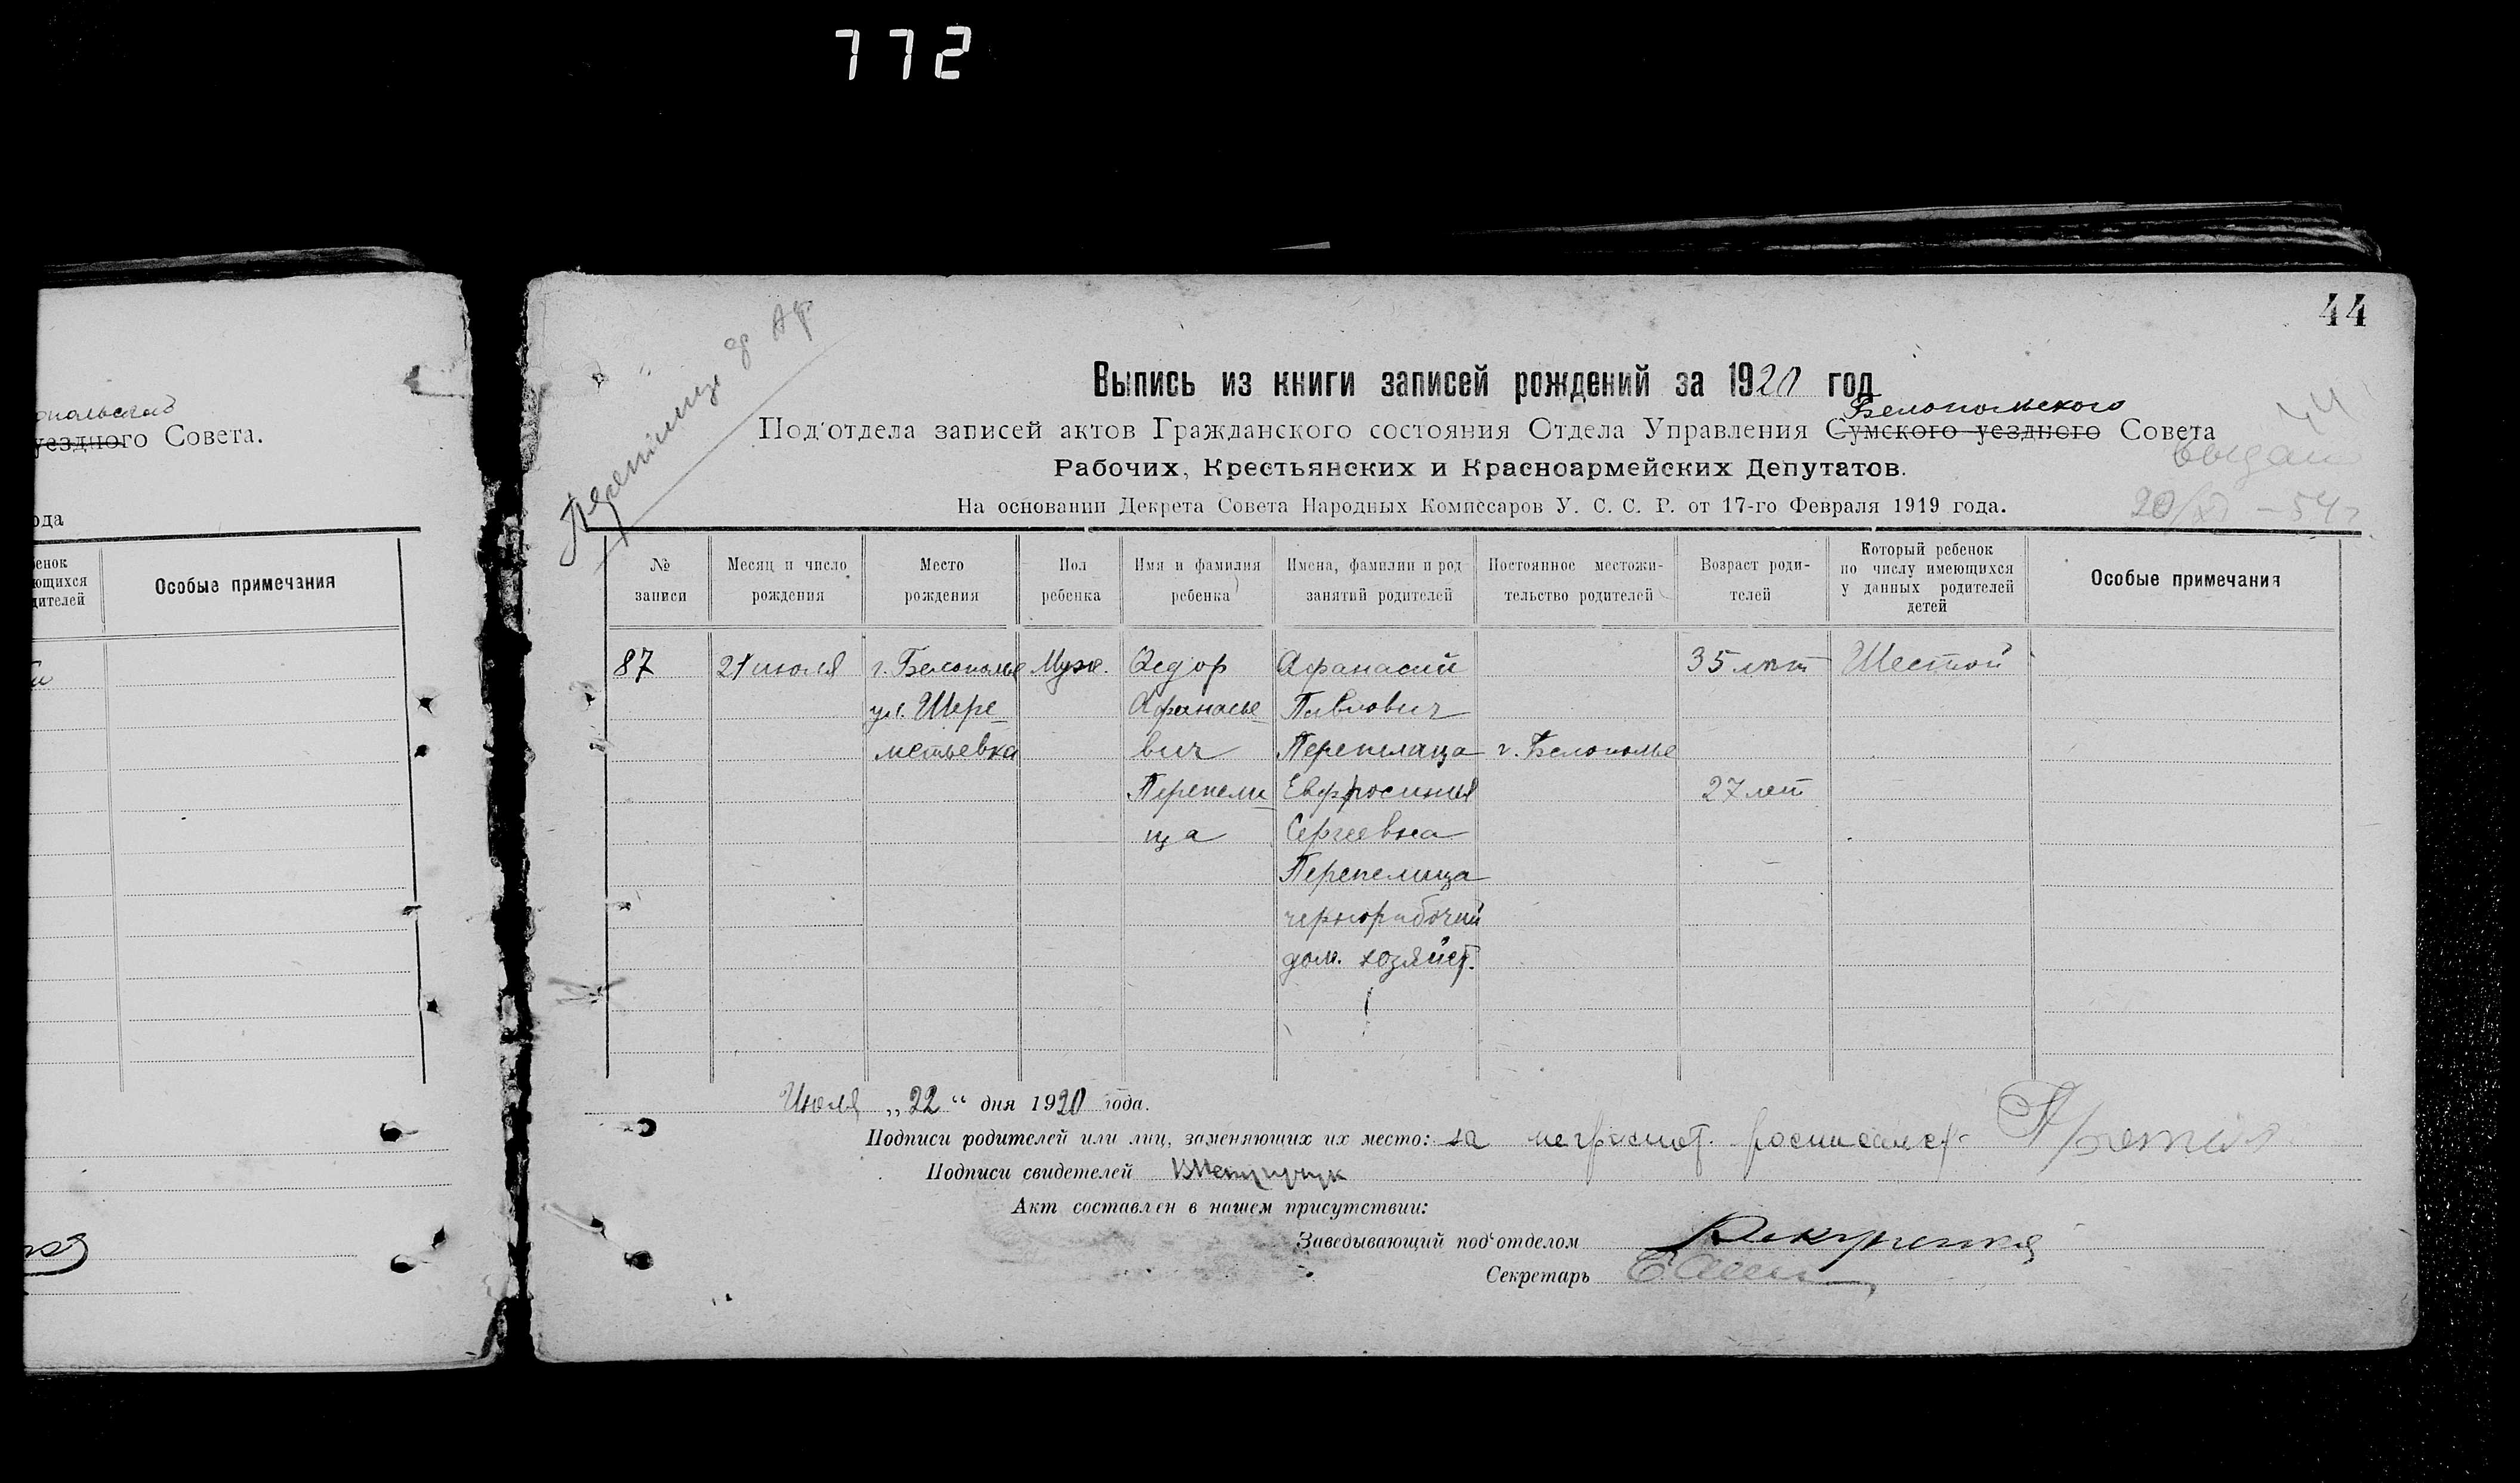 772
опольского
уездного Совета.
ода
бенок
ющихся
дителей
Особые примечания
44
Перепелица Ф Аф
Выпись из книги записей рождений за 1920 год
Белопольского
Под'отдела записей актов Гражданского состояния Отдела Управления Сумского уездного Совета
Рабочих, Крестьянских и Красноармейских Депутатов.
На основании Декрета Совета Народных Комиссаров У. С. С. Р. от 17-го Февраля 1919 года.
выдан
20/XI – 54 г
№ записи
Месяц и число рождения
Место рождения
Пол ребенка
Имя и фамилия ребенка
Имена, фамилии и род занятий родителей
Постоянное местожительство родителей
Возраст родителей
Который ребенок по числу имеющихся у данных родителей детей
Особые примечания
87 21 июля г. Белополье Муж. Федор Афанасий 35 лет Шестой
ул. Шере- Афанасье- Павлович
метьевка вич Перепелица г. Белополье
Перепели- Евфросиния 27 лет
ца Сергеевна
Перепелица
чернорабочий
дом. хозяйст.
Июля „22“ дня 1920 года.
Подписи родителей или лиц, заменяющих их место: за неграмот. росписался
Подписи свидетелей
Акт составлен в нашем присутствии:
Заведывающий под'отделом
Секретарь